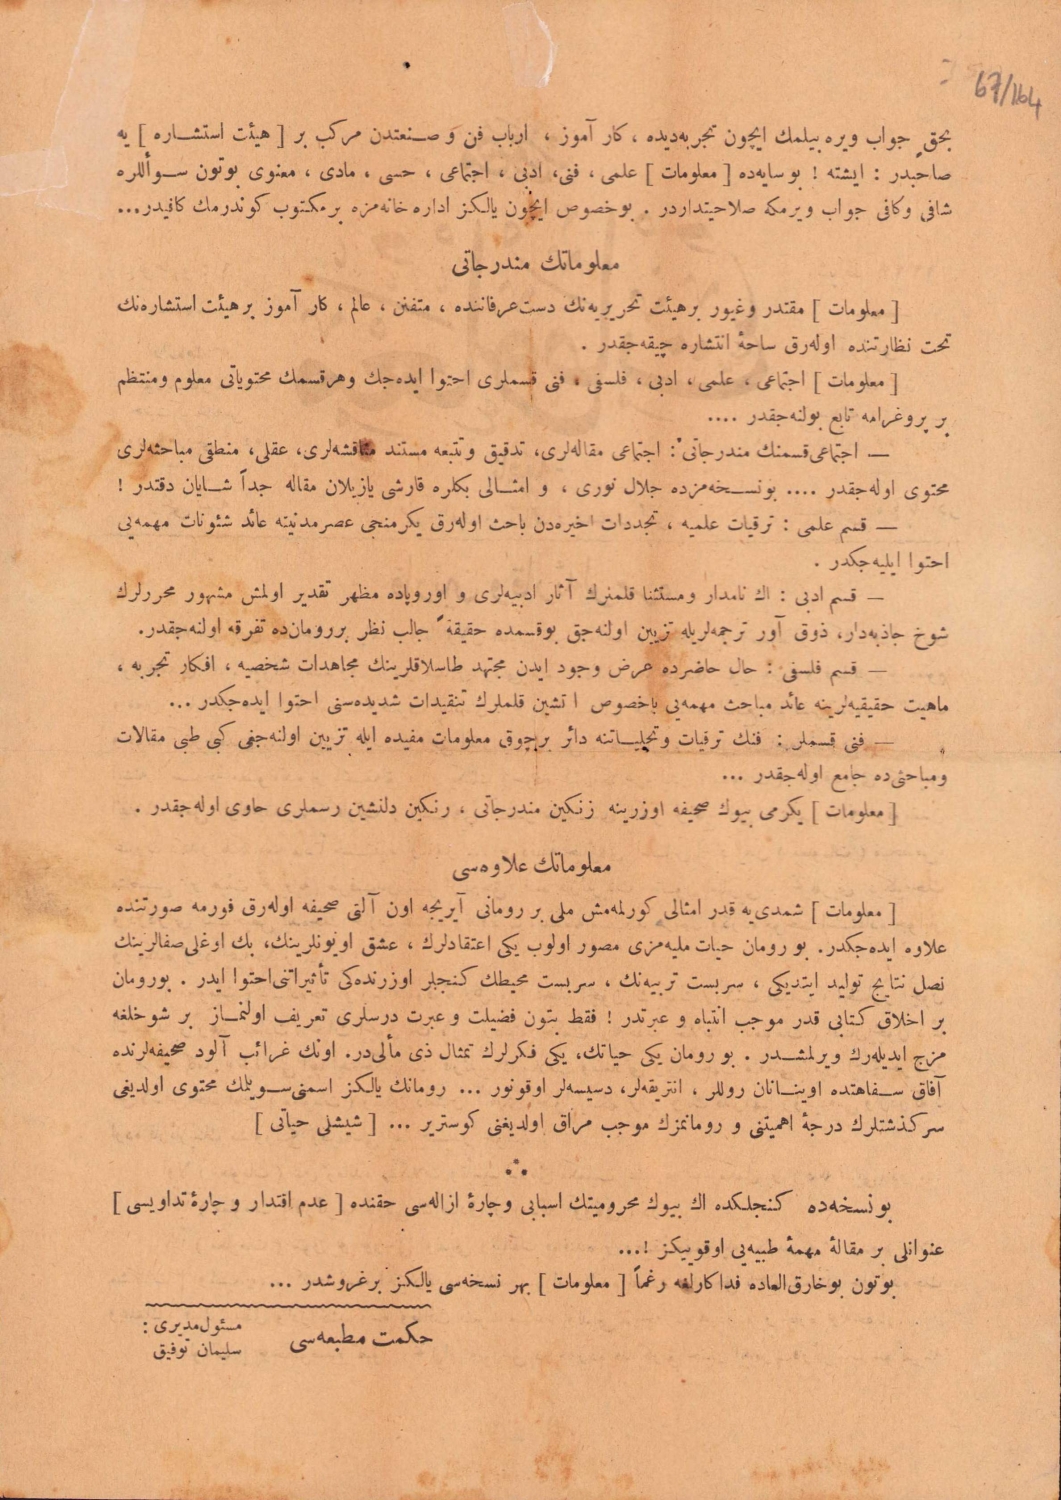 67/164
بحق جواب ويره بيلمك ايچون تجربه‌ديده ، كار آموز ، ارباب فن و صنعتدن مركب بر [ هيئت استشاره ] يه
صاحبدر : ايشته ! بو سايه‌ده [ معلومات ] علمى ، فنى ، ادبى ، اجتماعى ، حسى ، مادى ، معنوى بوتون سؤاللره
شافى وكافى جواب ويرمكه صلاحيتداردر . بوخصوص ايچون يالكز اداره خانه‌مزه بر مكتوب كوندرمك كافيدر...
معلوماتك مندرجاتى
[ معلومات ] مقتدر وغيور برهيئت تحريريه‌نك دست عرفاننده ، متفنن ، عالم ، كار آموز برهيئت استشاره‌نك
تحت نظارتنده اوله‌رق ساحۀ انتشاره چيقه‌جقدر .
[ معلومات ] اجتماعى ، علمى ، ادبى ، فلسفى ، فنى قسملرى احتوا ايده‌جك وهرقسمك محتوياتى معلوم ومنتظم
بر پروغرامه تابع بولنه‌جقدر ....
— اجتماعى قسمنك مندرجاتى : اجتماعى مقاله‌لرى، تدقيق وتتبعه مستند مناقشه‌لرى، عقلى، منطقى مباحثه‌لرى
محتوى اوله‌جقدر .... بونسخه‌مزده جلال نورى ، و امثالى بكلره قارشى يازيلان مقاله جداً شايان دقتدر !
— قسم علمى : ترقيات علميه ، تجددات اخيره‌دن باحث اوله‌رق يكرمنجى عصرمدنيتنه عائد شئونات مهمه‌يى
احتوا ايليه‌جكدر .
— قسم ادبى : اك نامدار ومستثنا قلمنرك آثار ادبيه‌لرى و اوروپاده مظهر تقدير اولمش مشهور محررلرك
شوخ جاذبه‌دار، ذوق آور ترجمه‌لريله تزيين اولنه‌جق بوقسمده حقيقةً جالب نظر بررومان‌ده تفرقه اولنه‌جقدر.
— قسم فلسفى : حال حاضرده عرض وجود ايدن مجتهد طاسلاقلرينك مجاهدات شخصيه ، افكار تجربه ،
ماهيت حقيقيه‌لرينه عائد مباحث مهمه‌يى باخصوص آتشين قلملرك تنقيدات شديده‌سنى احتوا ايده‌جكدر ...
— فنى قسملر : فنك ترقيات وتجلياتنه دائر برچوق معلومات مفيده ايله تزيين اولنه‌جغى كبى طبى مقالات
ومباحثى‌ده جامع اوله‌جقدر ...
[ معلومات ] يكرمى بيوك صحيفه اوزرينه زنكين مندرجاتى ، رنكين دلنشين رسملرى حاوى اوله‌جقدر .
معلوماتك علاوه‌سى
[ معلومات ] شمدى‌يه قدر امثالى كورلمه‌مش ملى بر رومانى آيريجه اون آلتى صحيفه اوله‌رق فورمه صورتنده
علاوه ايده‌جكدر. بو رومان حيات مليه‌مزى مصور اولوب يكى اعتقادلرك ، عشق اويونلرينك، بك اوغلى صفالرينك
نصل نتايج توليد ايتديكى ، سربست تربيه‌نك ، سربست محيطك كنجلر اوزرنده‌كى تأثيراتنى احتوا ايدر . بورومان
بر اخلاق كتابى قدر موجب انتباه و عبرتدر ! فقط بتون فضيلت و عبرت درسلرى تعريف اولنماز بر شوخلغه
مزج ايديله‌رك ويرلمشدر . بو رومان يكى حياتك، يكى فكرلرك تمثال ذى مآلى‌در. اونك غرائب آلود صحيفه‌لرنده
آفاق سفاهتده اوينانان روللر ، انتريقه‌لر، دسيسه‌لر اوقونور ... رومانك يالكز اسمنى سويلمك محتوى اولديغى
سركذشتلرك درجۀ اهميتنى و رومانمزك موجب مراق اولديغنى كوسترير ... [ شيشلى حياتى ]
بونسخه‌ده كنجلكده اك بيوك محروميتك اسبابى وچارۀ ازاله‌سى حقنده [ عدم اقتدار و چارۀ تداويسى ]
عنوانلى بر مقالۀ مهمۀ طبيه‌يى اوقوييكز !...
بوتون بوخارق‌العاده فداكارلغه رغماً [ معلومات ] بهر نسخه‌سى يالكز برغروشدر ...
حكمت مطبعه‌سى
مسئول مديرى :
سليمان توفيق